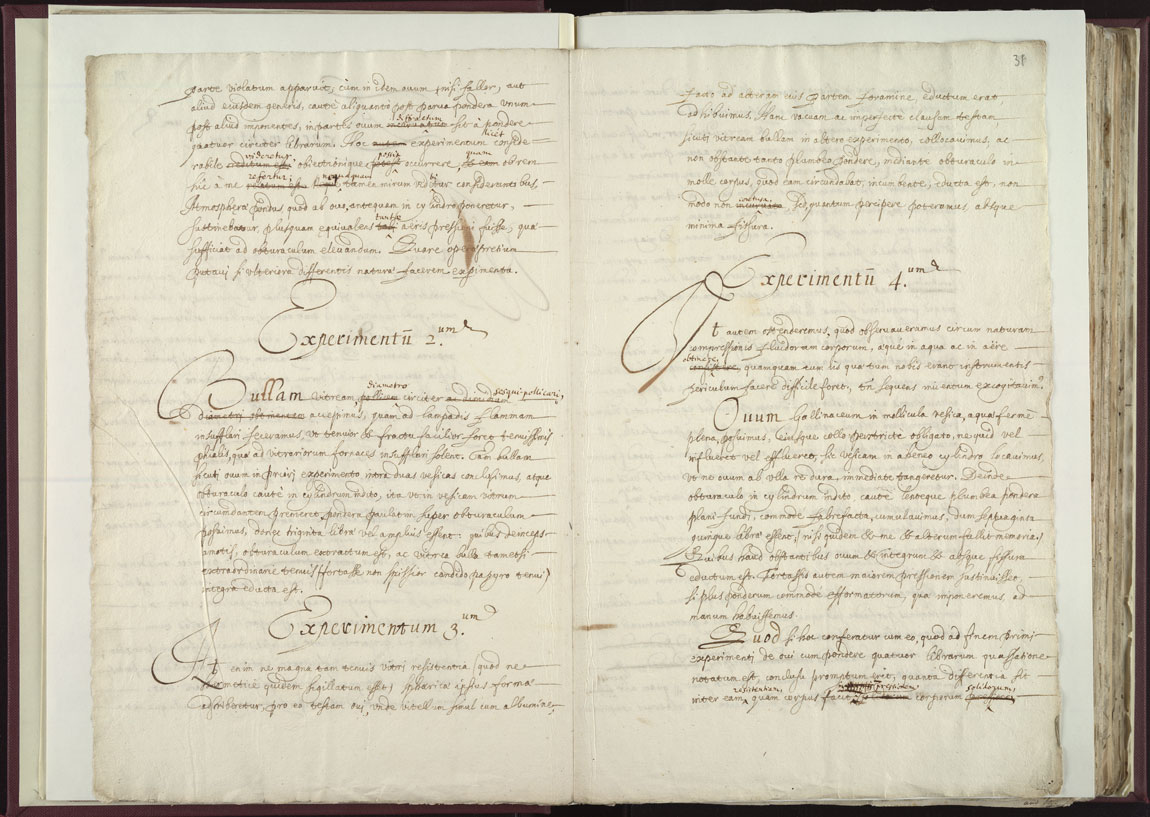 parte violatum apparuit; cum in idem ovum, nisi fallor, aut
aliud eiusdem generis, cautè aliquantò post parva pondera unum
post aliud imponentes, in partes ovum diffractum sit à pondere
quatuor circiter librarum. Hoc experimentum licèt conside-
rabile videretur, obiectionique possit occurrere, quam ob rem
hic à me refertur; nequaquam tamen mirum videbitur considerantibus,
Atmosphæræ pondus quod ab ovo, antequam in cylindro poneretur,
sustinebatur, plusquam equivalens tantæ aëris pressioni fuisse, quæ
sufficiat ad obturaculum elevandum. Quare operæ pretium
putavi si ulteriora differentis naturæ facerem experimenta.
Experimentū 2.um
Bullam vitream, diametro circiter sesqui pollicari,
accepimus, quam ad lampadis flammam
insufflari feceramus, ut tenuior & fractu facilior foret tenuissimis
phialis, quæ ad vitrariorum fornaces insufflari solent. Eam bullam
sicuti ovum in priori experimento intra duas vesicas conclusimus, atque
obturaculo cautè in cylindrum indito, ita ut in vesicam vitrum
circumdantem premeret, pondera paulatim super obturaculum
posuimus, donec triginta libræ vel amplius essent: quibus deinceps
amotis, obturaculum extractum est, ac vitrea bulla tametsi
extraordinarie tenuis (fortasse non spissior candido papyro tenui)
integra educta est.
Experimentum 3.um
At enim ne magna tam tenuis vitri resistentia, quod ne
Hermeticè quidem sigillatum esset, sphæricæ ipsius formæ
adscriberetur, pro eo testam ovi, unde vitellum simul cum albumine,
38
facto ad acutam eius partem foramine eductum erat,
adhibuimus. Hanc vacuam ac imperfectè clausam testam
sicuti vitream bullam in altero experimento, collocavimus, ac
non obstante tanto plumbeo pondere, mediante obturaculo in
molle corpus, quod eam circundabat, incumbente, educta est, non
modo non sed, quantum percipere poteramus absque
minima fissura.
Experimentū 4.um
Ut autem ostenderemus, quod observaveramus circum naturam
compressionis fluidorum corporum, æquè in aqua ac in aëre
obtinere, quamquam cum iis quæ tum nobis erant instrumentis
periculum facere difficile foret, en sequens inventum excogitavim.
Ovum Gallinaceum in mollicula vesica, aqua fermè
plena, posuimus. Eiusque collo perstrictè obligato, ne quid vel
influeret vel efflueret, sic vesicam in aheneo cylindro locavimus,
ut ne ovum ab ulla re dura, immediatè tangeretur. Deinde
obturaculo in cylindrum indito, cautè lentèque plumbea pondera
plani fundi, commodè fabrefacta, cumulavimus, dum septuaginta
quinque libræ essent, (nisi quidem & me & alterum fallit memoria)
Quibus haud obstantibus ovum & integrum & absque fissura
eductum est. Fortassis autem maiorem pressionem sustinuisset,
si plus ponderum commodè efformatorum, quæ imponeremus, ad
manum habuissemus.
Quod si hoc conferatur cum eo, quod ad finem primi
experimenti de ovi cum pondere quatuor librarum quassatione
notatum est, conclusu promptum erit, quanta differentia sit
inter eam resistentiam, quam corpus facit corporum solidorum,